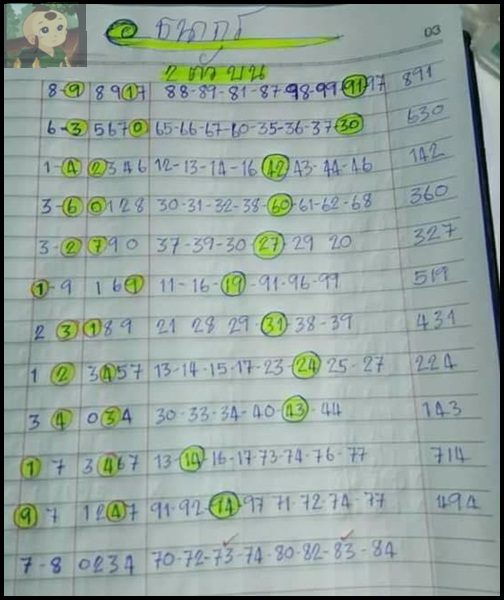 ธนากร
03
2 ตัวบน
8-9 8917 88-89-81-87-98-99-91-97 891
6-3 5670 65-66-67-60-35-36-37-30 630
1-4 2346 12-13-14-16 42 43-44-46 142
3-6 0128 30-31-32-38-60-61-62-68 360
3-2 790 37-39-30-27-29 20 327
1-9 161 11-16-19-91-96-99 519
2 3 189 21 28 29-31-38-39 431
1 2 3457 13-14-15-17-23-24 25-27 224
3 4 034 30-33-34-40-43-44 143
1 7 3467 13-14-16-17-73-74-76-77 714
9 7 1247 91-92-94-97 71-72-74-77 494
7-8 0234 70-72-73-74-80-82-83-84